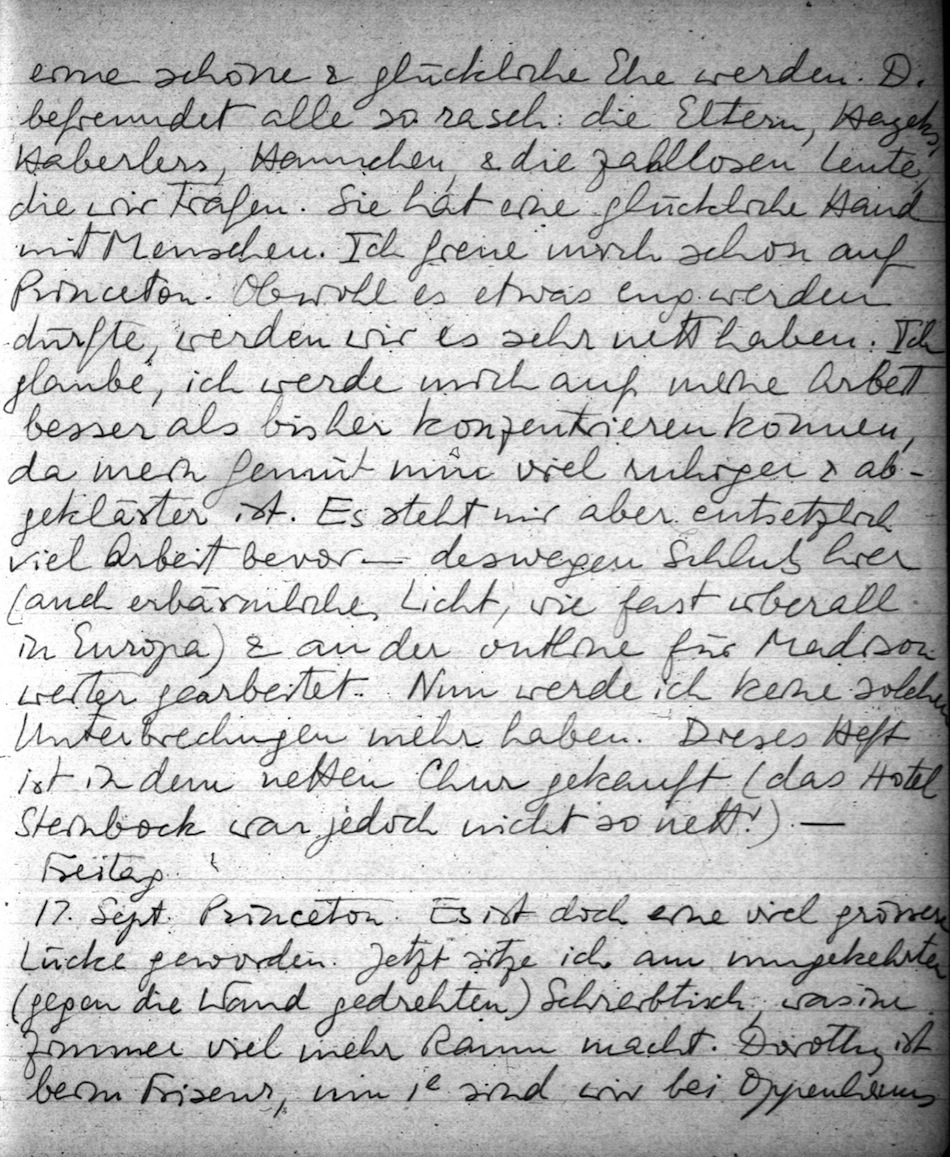 eine schöne & glückliche Ehe werden. D.
befreundet alle so rasch: die Eltern, Hayeks,
Haberlers, Hannchen, & die zahllosen Leute,
die wir trafen. Sie hat eine glückliche Hand
mit Menschen. Ich freue mich schon auf
Princeton. Obwohl es etwas eng werden
dürfte, werden wir es sehr nett haben. Ich
glaube, ich werde mich auf meine Arbeit
besser als bisher konzentrieren können,
da mein Gemüt nun viel ruhiger & ab-
geklärter ist. Es steht mir aber entsetzlich
viel Arbeit bevor — deswegen Schluß hier
(auch erbärmliches Licht, wie fast überall
in Europa) & an der outline für Madison
weiter gearbeitet. Nun werde ich keine solchen
Unterbrechungen mehr haben. Dieses Heft
ist in dem netten Chur gekauft (das Hotel
Steinbock war jedoch nicht so nett!) —
Freitag
17. Sept. Princeton. Es ist doch eine viel grössere
Lücke geworden. Jetzt sitze ich am umgekehrten
(gegen die Wand gedrehten) Schreibtisch, was im
Zimmer viel mehr Raum macht. Dorothy ist
beim Friseur, um 1e sind wir bei Oppenheims